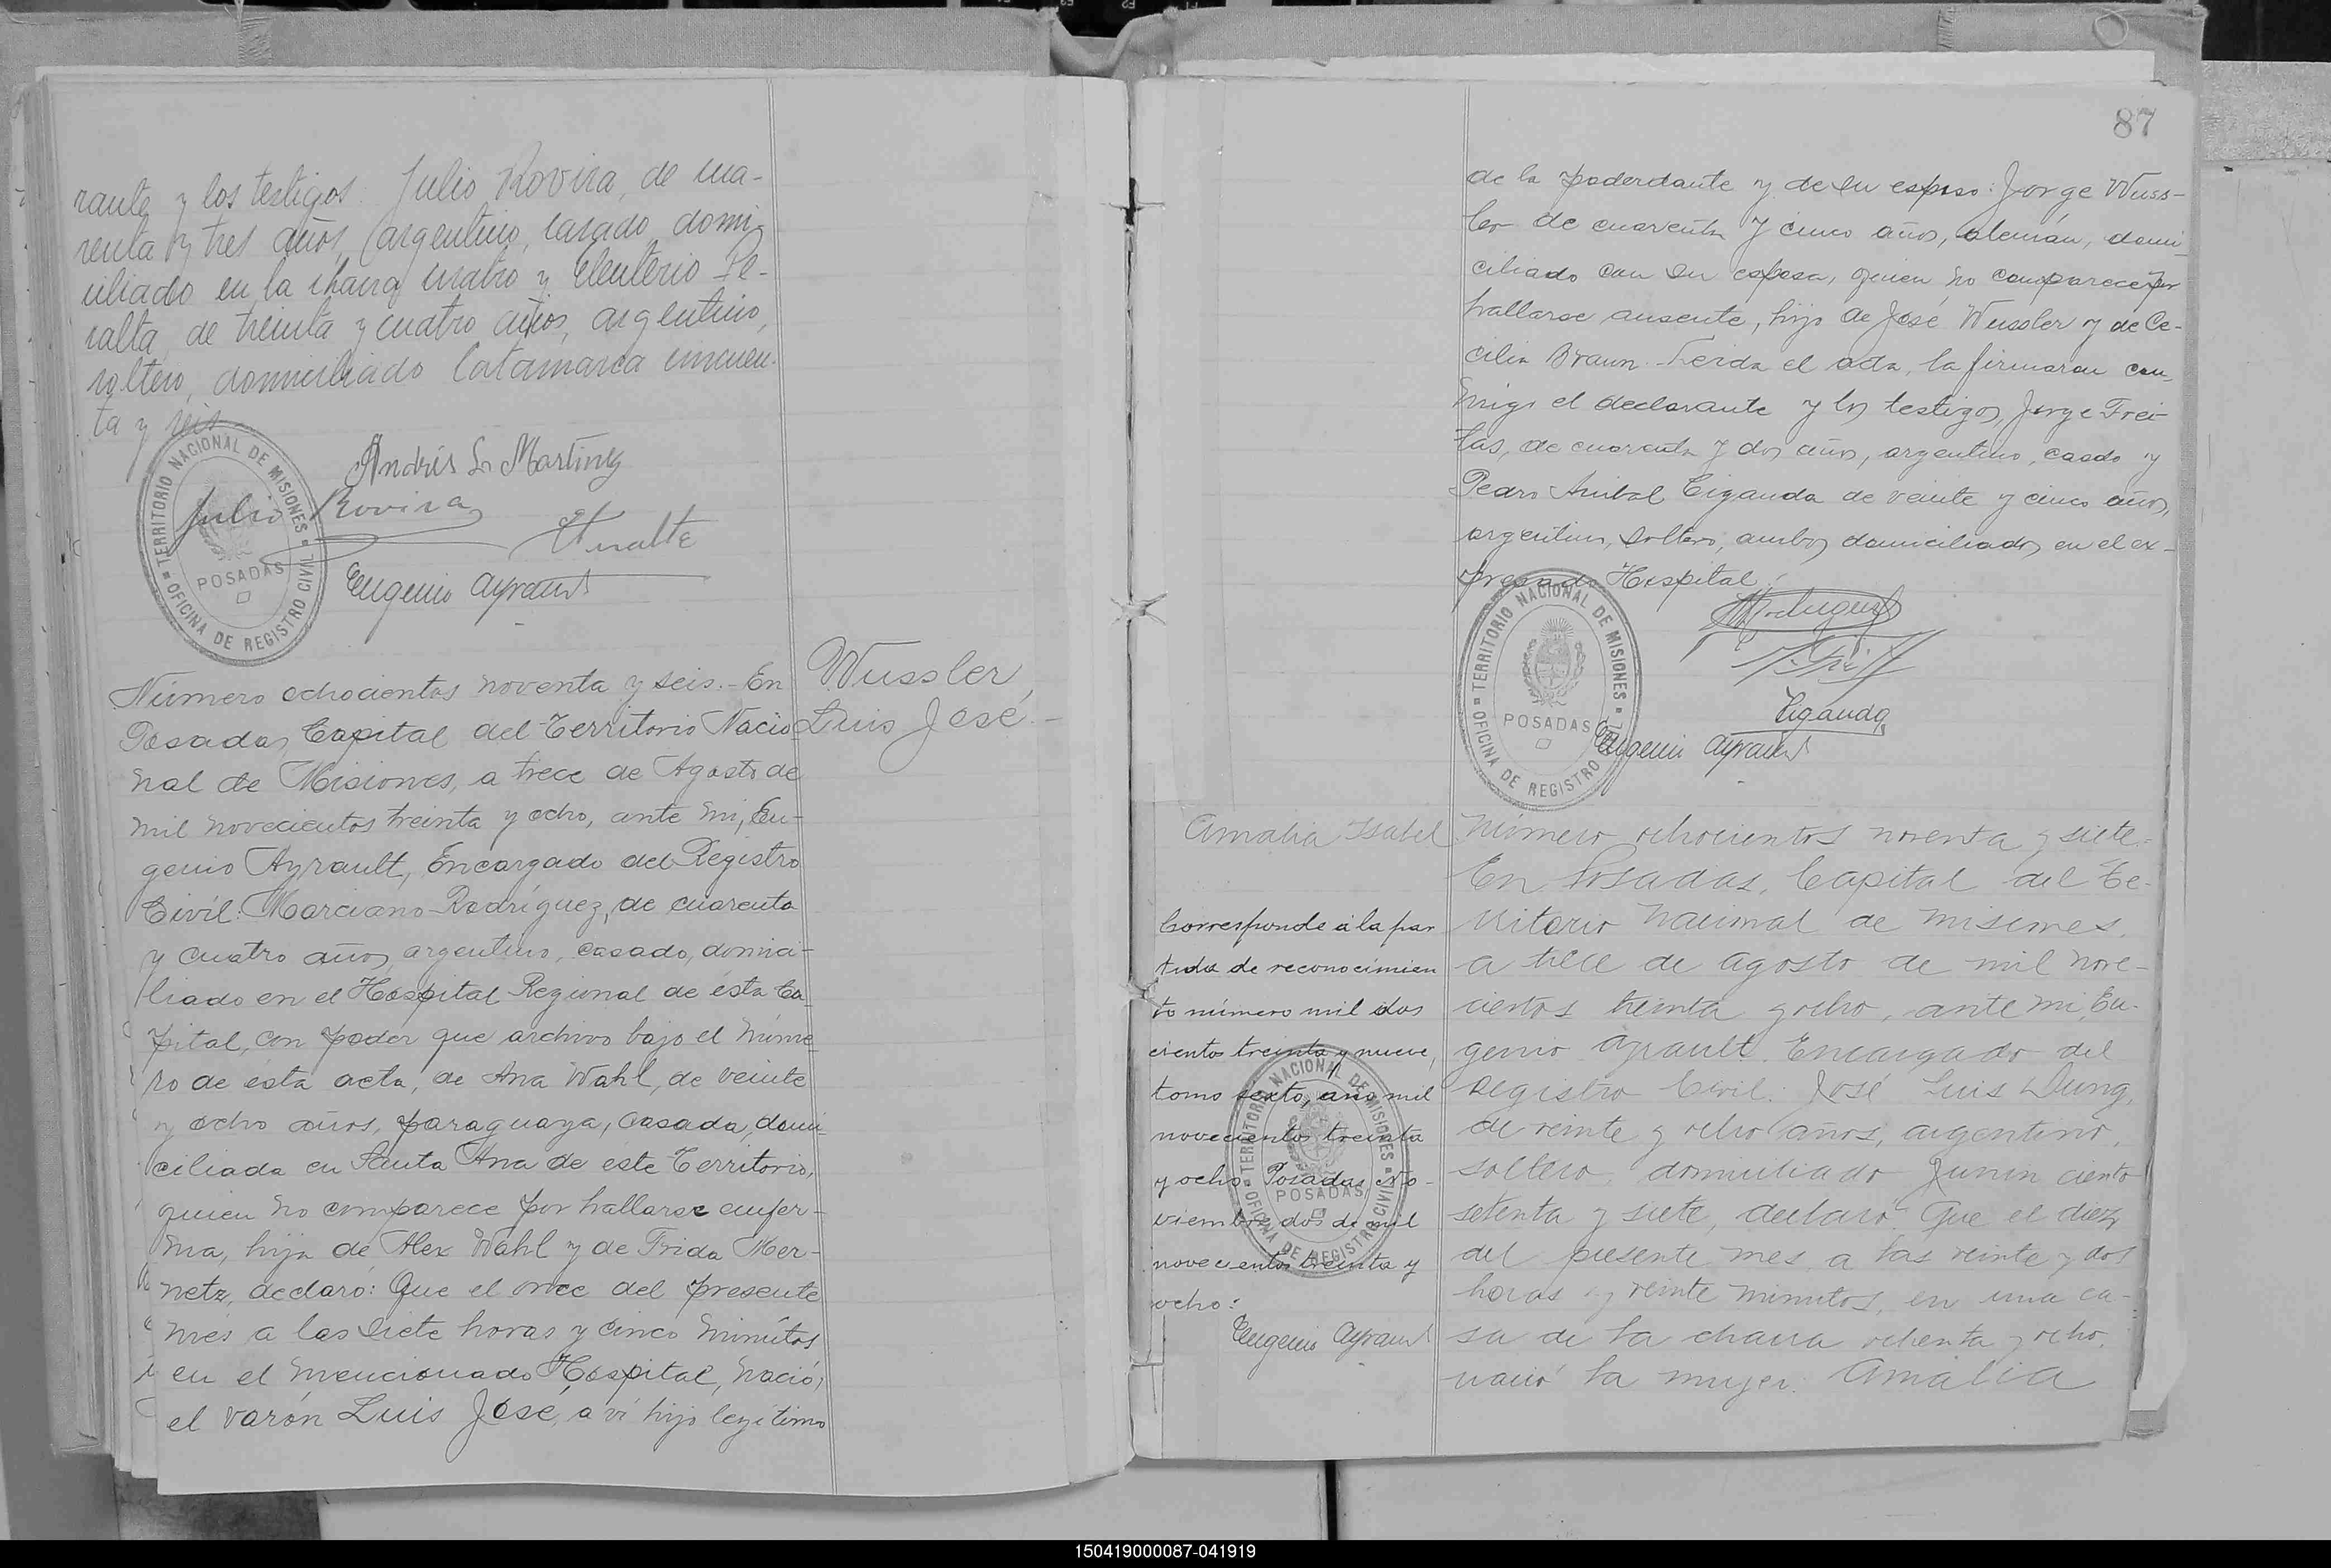 rante y los testigos: Julio Rovira, de cua-
renta y tres años, argentino, casado, domi-
ciliado en la chacra cuatro y Eleuterio Pe-
ralta, de treinta y cuatro años, argentino,
soltero, domiciliado Catamarca cincuen-
ta y seis.
Andrés L. Martinez
Julio Rovira
Peralta
Eugenio Ayrault
TERRITORIO NACIONAL DE MISIONES
POSADAS
OFICINA DE REGISTRO CIVIL
Wussler,
Luis José.-
Número ochocientos noventa y seis.- En
Posadas, Capital del Territorio Nacio
nal de Misiones, a trece de Agosto de
mil novecientos treinta y ocho, ante mi, Eu-
genio Ayrault, Encargado del Registro
Civil: Marciano Rodríguez, de cuarenta
y cuatro años, argentino, casado, domici-
liado en el Hospital Regional de ésta Ca
pital, con poder que archivo bajo el núme
ro de ésta acta, de Ana Wahl, de veinte
y ocho años, paraguaya, casada, domi-
ciliada en Santa Ana de este Territorio,
quien no comparece por hallarse enfer-
ma, hija de Alex Wahl y de Frida Mer-
netz, declaró: Que el once del presente
mes a las siete horas y cinco minutos
en el mencionado Hospital, nació,
el varón Luis José, a vi hijo legítimo
87
de la poderdante y de su esposo: Jorge Wuss-
ler de cuarenta y cinco años, alemán, domi
ciliado con su esposa, quien no comparece por
hallarse ausente, hijo de José Wussler y de Ce-
cilia Braun. Leida el acta, la firmaron con-
migo el declarante y los testigos, Jorge Frei-
tas, de cuarenta y dos años, argentino, casado y
Pedro Anibal Ciganda de veinte y cinco años,
argentino, soltero, ambos domiciliados en el ex-
presado Hospital.
Ciganda
Eugenio Ayrault
TERRITORIO NACIONAL DE MISIONES
POSADAS
OFICINA DE REGISTRO CIVIL
Amalia Isabel
Corresponde a la par
tida de reconocimien
to número mil dos
cientos treinta y nueve,
tomo sexto, año mil
novecientos treinta
y ocho. Posadas, No-
viembre dos de mil
novecientos treinta y
ocho:
Eugenio Ayrault
TERRITORIO NACIONAL DE MISIONES
POSADAS
OFICINA DE REGISTRO CIVIL
Número ochocientos noventa y siete.
En Posadas, Capital del Te-
rritorio Nacional de Misiones,
a trece de agosto de mil nove-
cientos treinta y ocho, ante mi, Eu-
genio Ayrault. Encargado del
Registro Civil. José Luis Dung,
de veinte y ocho años, argentino,
soltero, domiciliado Junin ciento
setenta y siete, declaró: Que el diez
del presente mes a las veinte y dos
horas y veinte minutos, en una ca-
sa de la chacra ochenta y ocho,
nació la mujer: Amalia
150419000087-041919